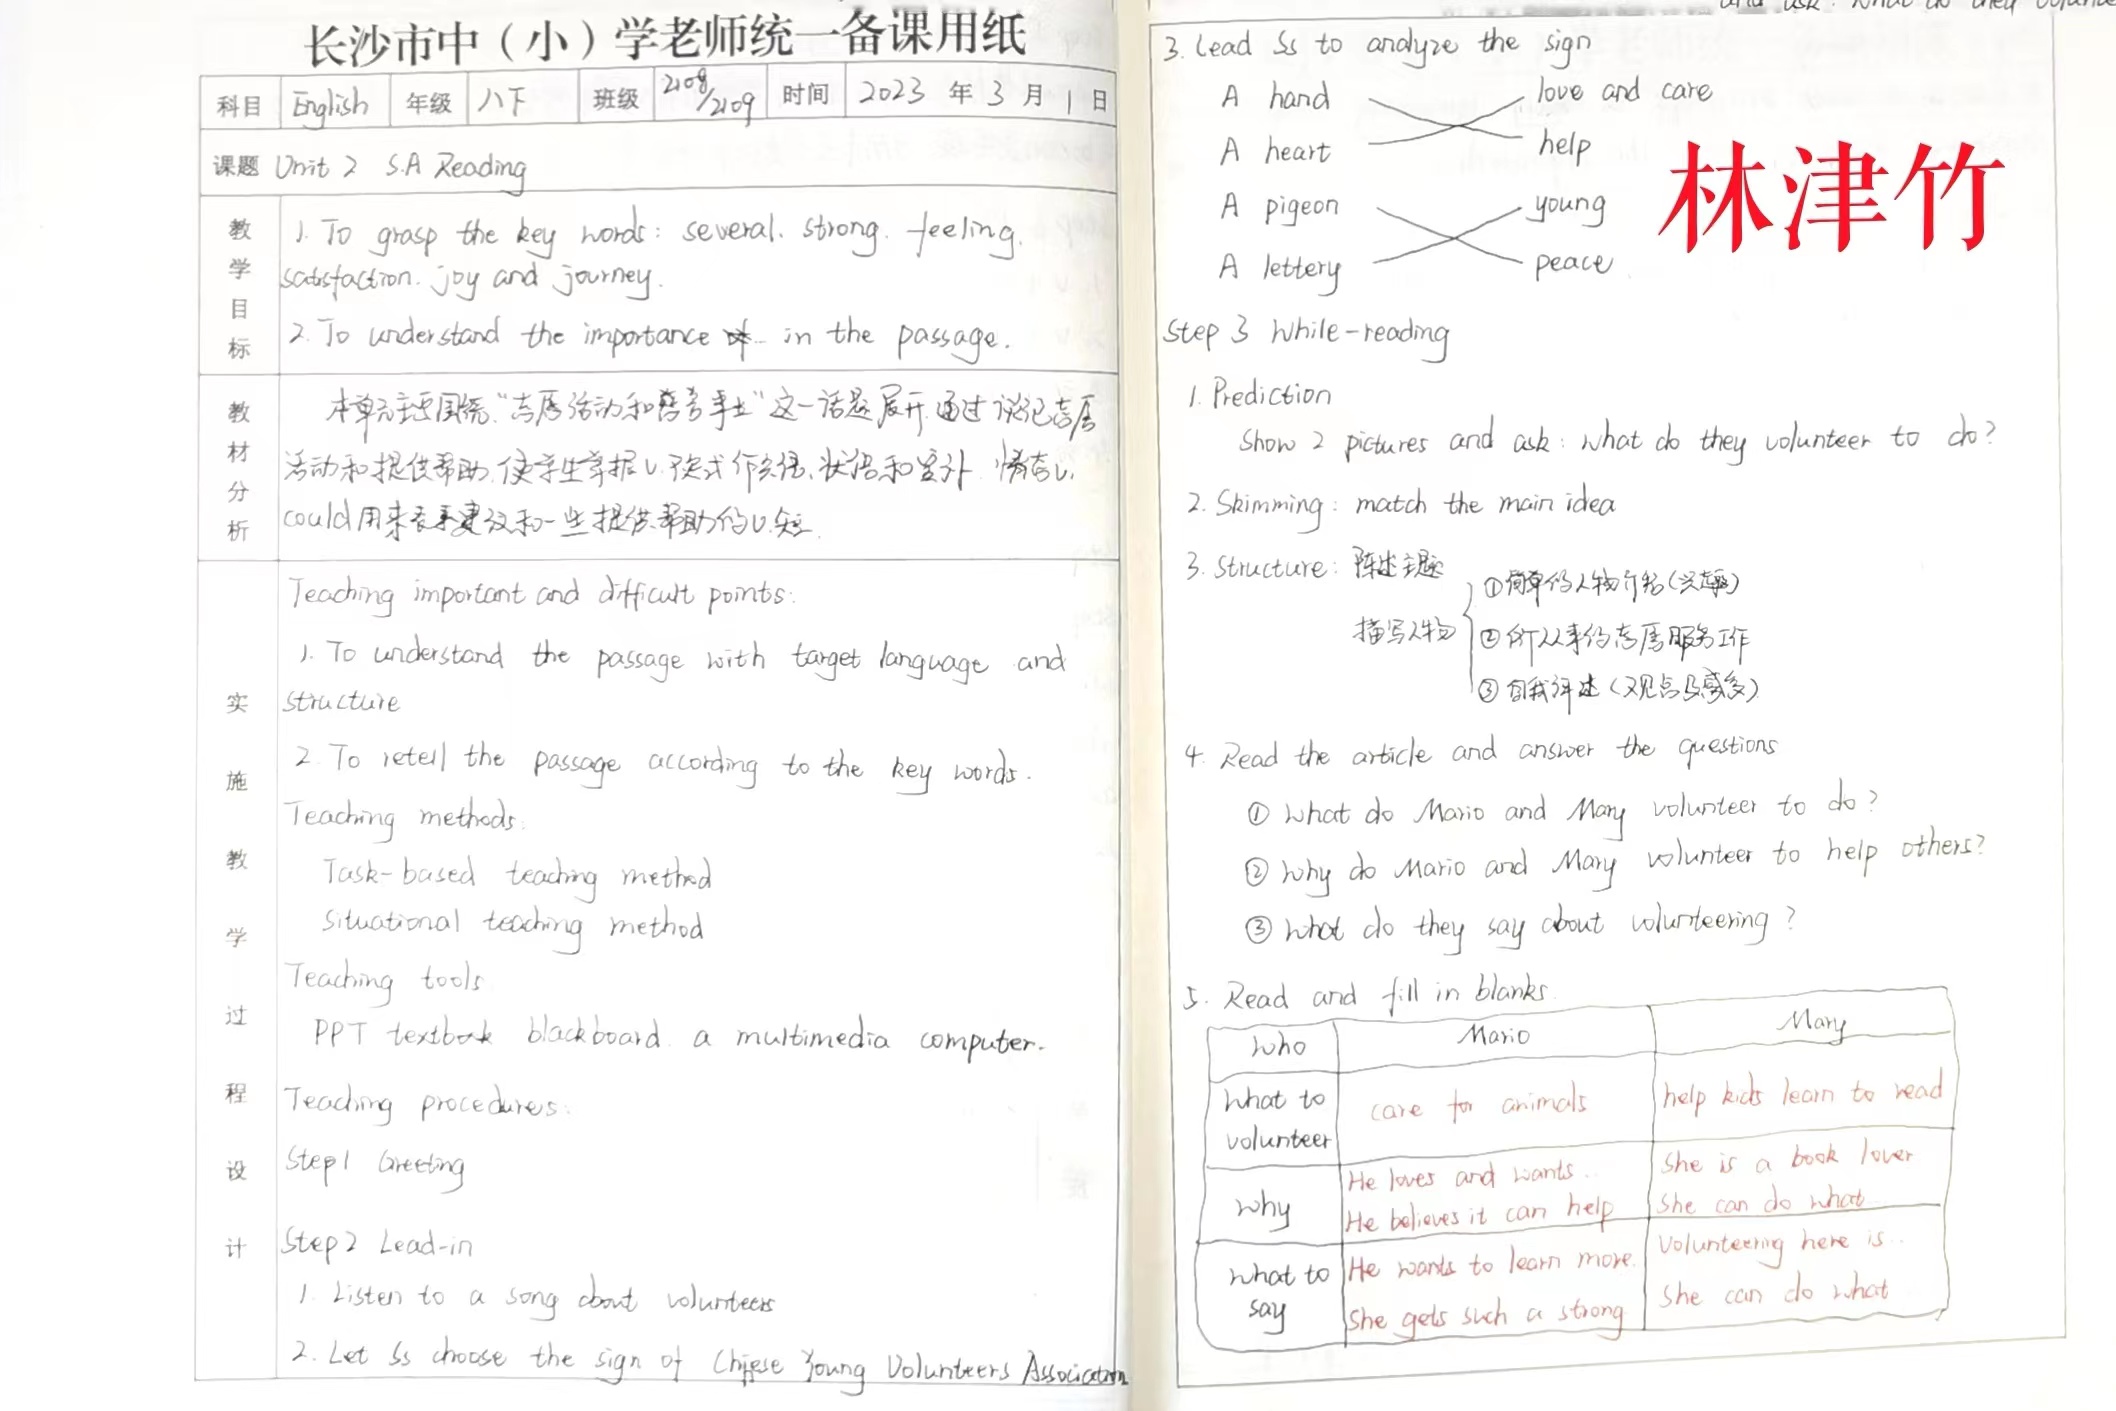 长沙市中（小）学老师统一备课用纸
科目 English 年级 八下 班级 2108/2109 时间 2023 年 3 月 1 日
课题 Unit 2 S.A Reading
教学目标
1. To grasp the key words: several. strong. feeling.
satisfaction. joy and journey.
2. To understand the importance of in the passage.
教材分析
本单元主要围绕“志愿活动和慈善事业”这一话题展开.通过谈论志愿
活动和提供帮助,使学生掌握v.不定式作宾语、状语和宾补.情态v.
could用来表示建议和一些提供帮助的v.短.
实施教学过程设计
Teaching important and difficult points:
1. To understand the passage with target language and
structure
2. To retell the passage according to the key words.
Teaching methods:
Task-based teaching method
Situational teaching method
Teaching tools
PPT textbook blackboard. a multimedia computer.
Teaching procedures:
Step1 Greeting
Step2 Lead-in
1. Listen to a song about volunteers
2. Let Ss choose the sign of Chinese Young Volunteers Association
and ask: What do they
3. Lead Ss to analyze the sign
A hand love and care
A heart help
A pigeon young
A lettery peace
林津竹
Step 3 While-reading
1. Prediction
Show 2 pictures and ask: What do they volunteer to do?
2. Skimming: match the main idea
3. Structure: 陈述主题
描写人物
①简单的人物介绍(兴趣)
②所从事的志愿服务工作
③自我评述(观点及感受)
4. Read the article and answer the questions
① What do Mario and Mary volunteer to do?
② Why do Mario and Mary volunteer to help others?
③ What do they say about volunteering?
5. Read and fill in blanks.
Who Mario Mary
What to volunteer care for animals help kids learn to read
Why He loves and wants.. She is a book lover
He believes it can help She can do what
What to say He wants to learn more. Volunteering here is..
She gets such a strong She can do what